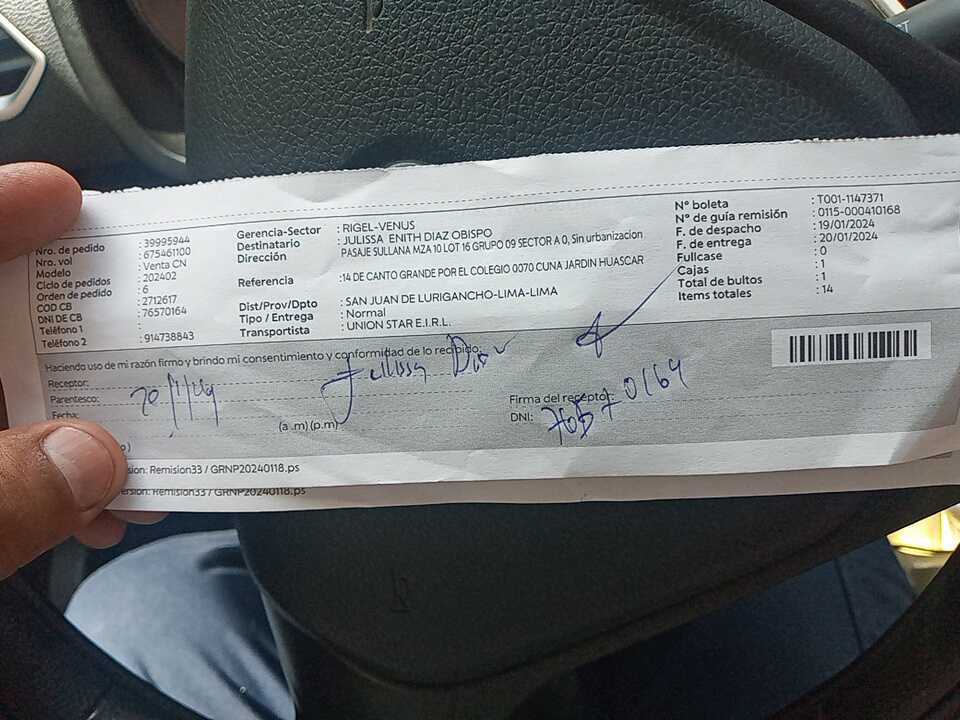 Nro. de pedido : 39995944
Nro. vol : 675461100
Modelo : Venta CN
Ciclo de pedidos : 202402
Orden de pedido : 6
COD CB : 2712617
DNI DE CB : 76570164
Teléfono 1 :
Teléfono 2 : 914738843
Gerencia-Sector : RIGEL-VENUS
Destinatario : JULISSA ENITH DIAZ OBISPO
Dirección PASAJE SULLANA MZA 10 LOT 16 GRUPO 09 SECTOR A 0, Sin urbanizacion
Referencia : 14 DE CANTO GRANDE POR EL COLEGIO 0070 CUNA JARDIN HUASCAR
Dist/Prov/Dpto : SAN JUAN DE LURIGANCHO-LIMA-LIMA
Tipo / Entrega : Normal
Transportista : UNION STAR E.I.R.L.
N° boleta : T001-1147371
N° de guía remisión : 0115-000410168
F. de despacho : 19/01/2024
F. de entrega : 20/01/2024
Fullcase : 0
Cajas : 1
Total de bultos : 1
Items totales : 14
Haciendo uso de mi razón firmo y brindo mi consentimiento y conformidad de lo recibido:
Receptor: Julissa
Parentesco:
Fecha:
(a .m) (p.m)
Firma del receptor:
DNI: 76570164
sion: Remision33 / GRNP20240118.ps
ersion: Remision33 / GRNP20240118.ps